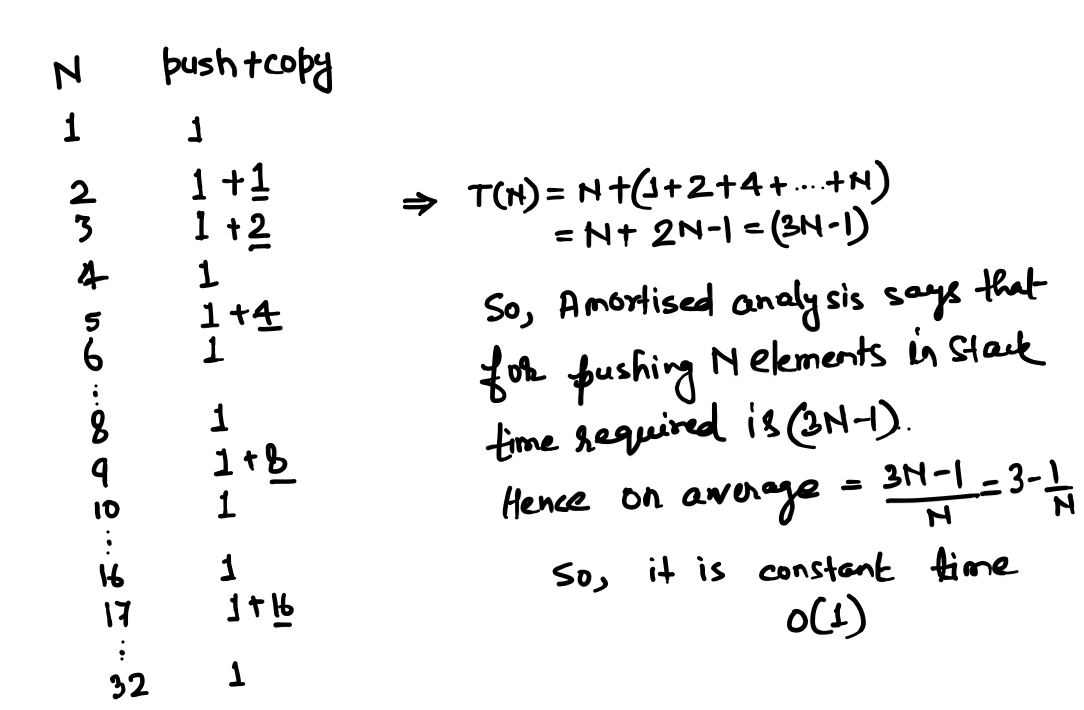 N push+copy
1 1
2 1 + 1
3 1 + 2
4 1
5 1 + 4
6 1
⋮
8 1
9 1 + 8
10 1
⋮
16 1
17 1 + 16
⋮
32 1
⇒ T(N) = N + (1+2+4+....+N)
= N + 2N-1 = (3N-1)
So, Amortised analysis says that
for pushing N elements in stack
time required is (3N-1).
Hence on average = 3N-1/N = 3-1/N
So, it is constant time
O(1)